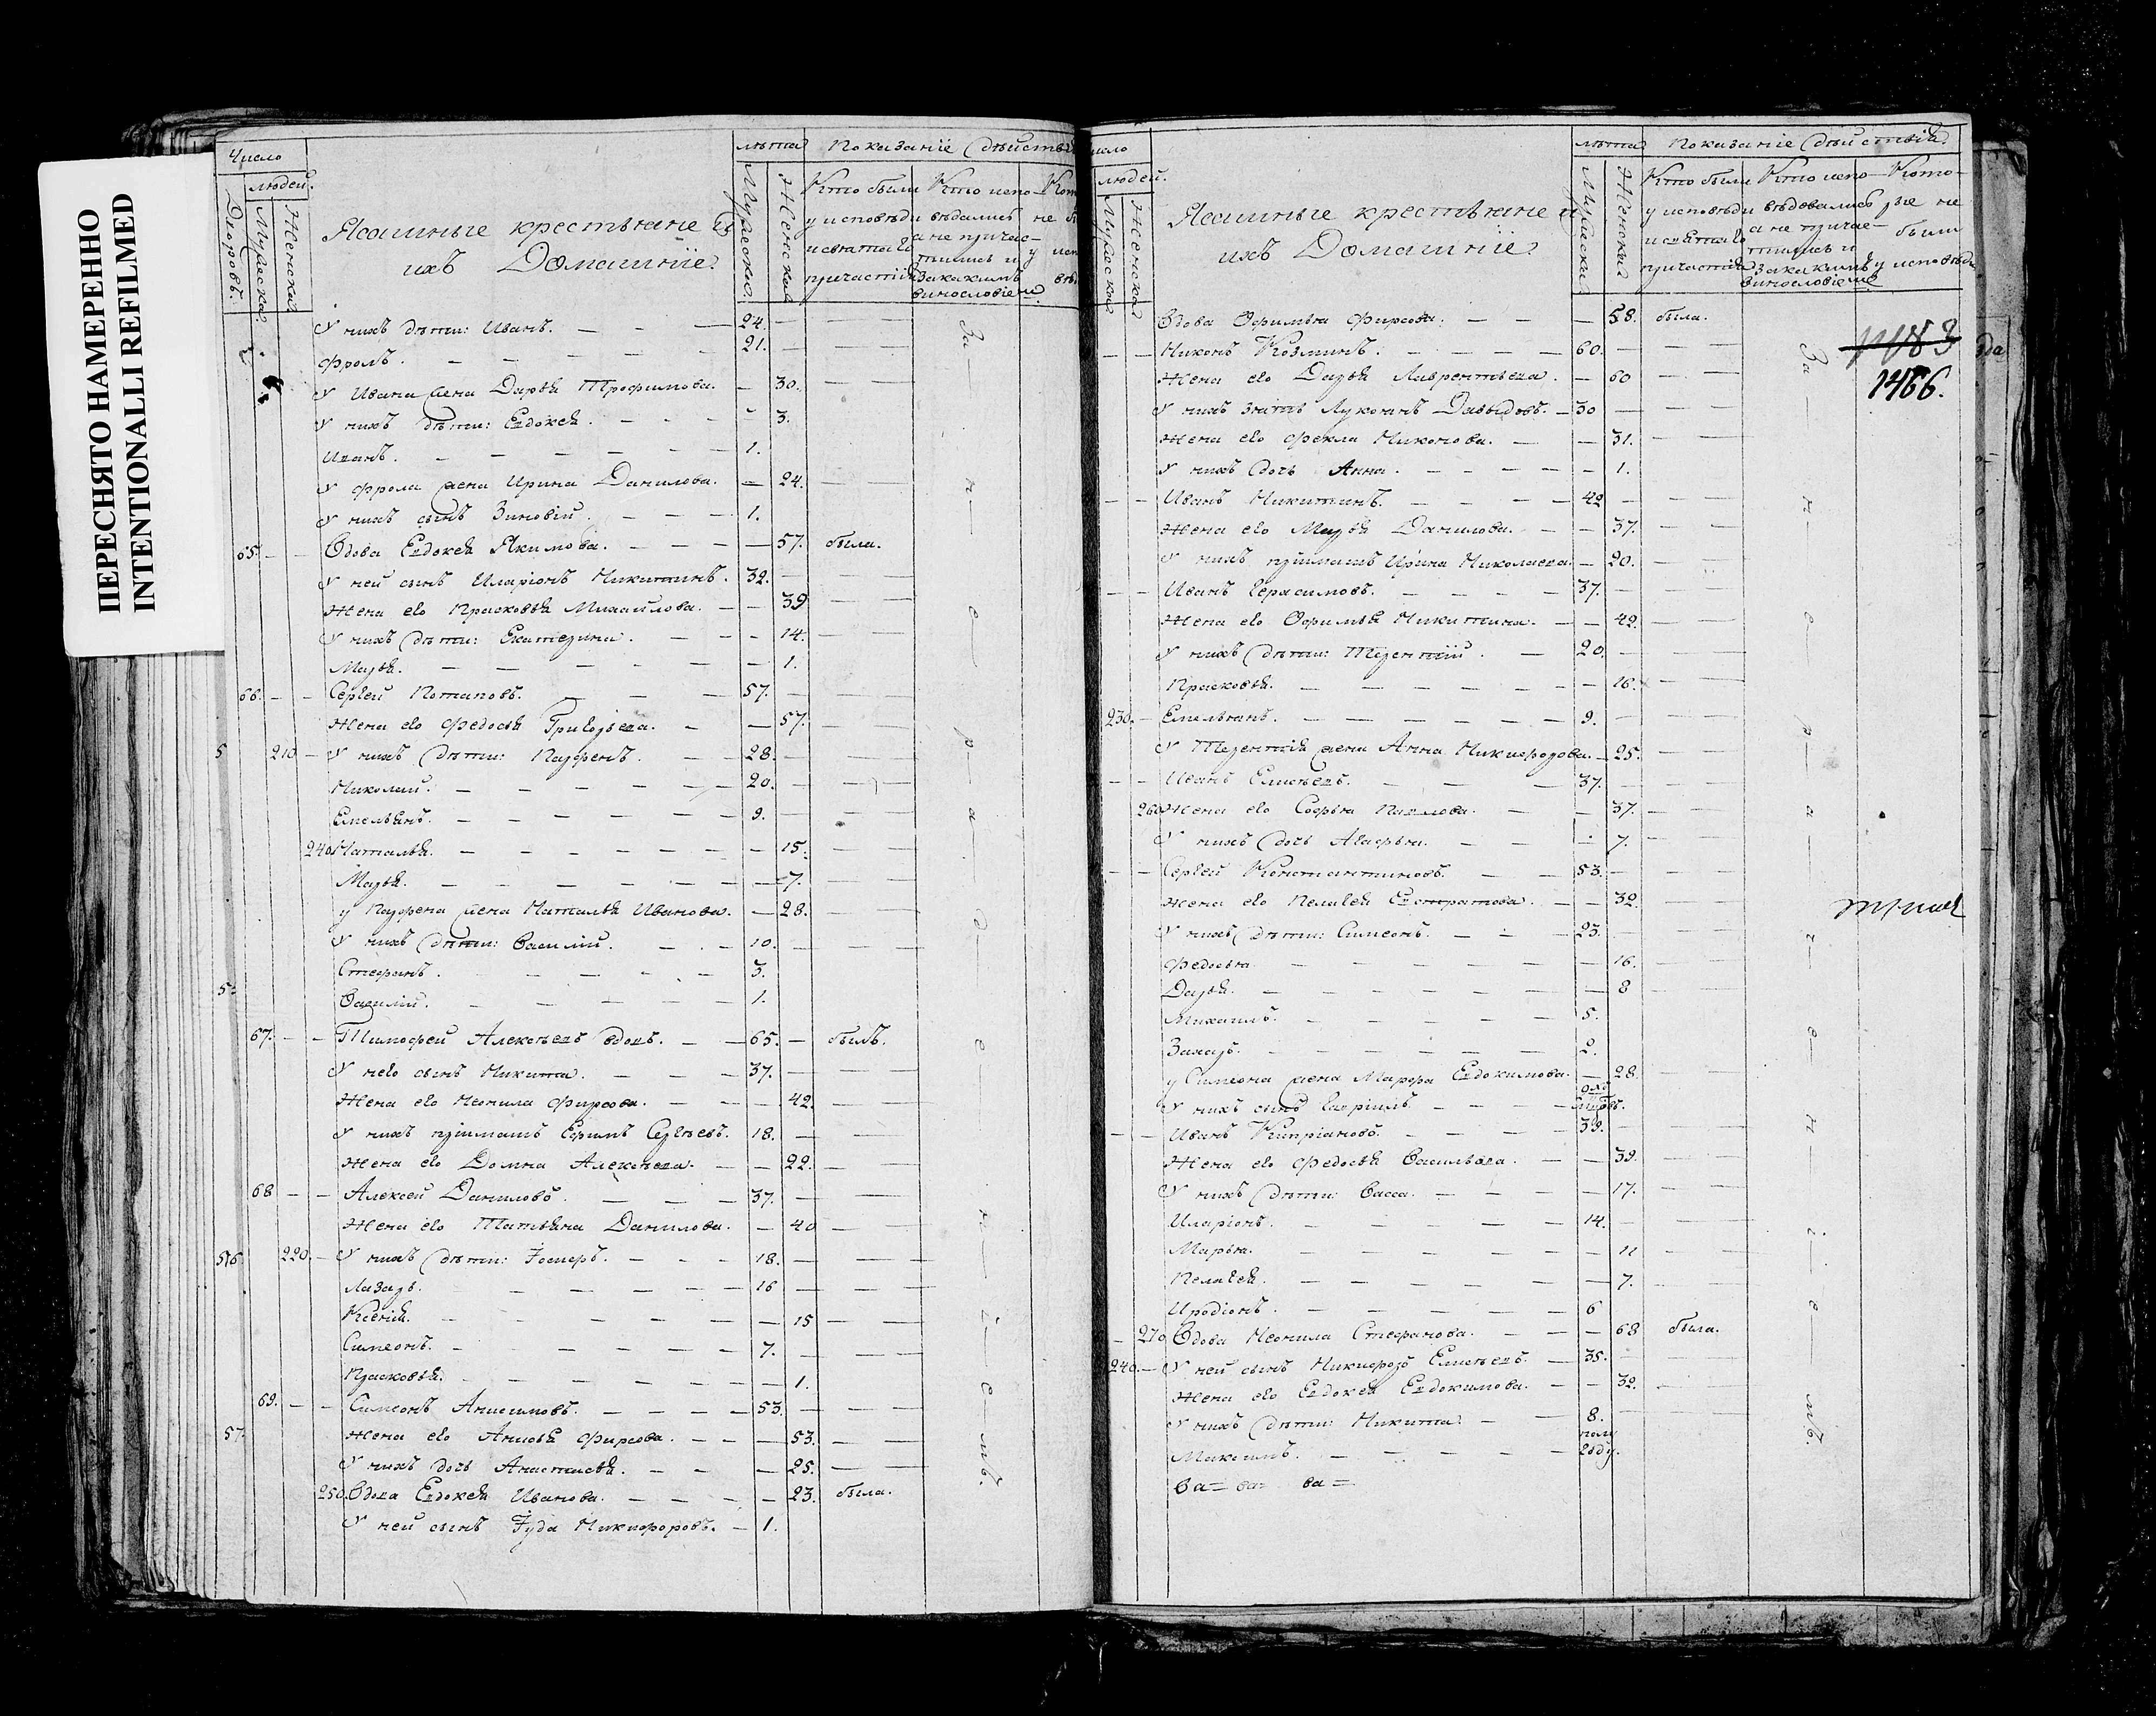 ПЕРЕСНЯТО НАМЕРЕННО
INTENTIONALLI REFILMED
Число
людей.
Дворовъ.
Мужеска.
Женска.
Ясашные крестьяне и
ихъ Домашніе.
лѣта
Мужеско.
Женска
Показаніе дѣйствій
Кто были
у исповѣди
и святаго
причастія
Кто испо-
вѣдались
а не причас-
тились и
за какимъ
винословіем
У нихъ дѣти: Иванъ. 24.
Фролъ. 21.
У Ивана жена Дарья Трофимова. 30.
У нихъ дѣти: Евдокея. 3.
Иванъ. 1.
У Фрола жена Ирина Данилова. 24.
У нихъ сынъ Зиновій. 1.
65. Вдова Евдокея Якимова. 57. была.
У ней сынъ Иларіонъ Никитинъ. 32.
Жена его Прасковья Михайлова. 39
У нихъ дѣти: Екатерина. 14.
Марья. 1.
66. Сергей Потаповъ. 57.
Жена его Федосья Григорьева. 57.
210 У нихъ дѣти: Парфенъ. 28.
Николай. 20.
Емельянъ. 9.
240 Наталья. 15.
Марья. 7.
у Парфена жена Наталья Иванова. 28.
У нихъ дѣти: Василій. 10.
Стефанъ. 3.
Василій. 1.
67. Тимофей Алексѣевъ вдовъ. 65. былъ.
У него сынъ Никита. 37.
Жена его Неонила Фирсова. 42.
У нихъ пріимашъ Ефимъ Сергѣевъ. 18.
Жена его Домна Алексѣева. 22.
68 Алексей Даниловъ. 37.
Жена его Татьяна Данилова. 40
220. У нихъ дѣти: Іосифъ. 18.
Лазарь. 16
Ксенія. 15
Симеонъ. 7.
Прасковья. 1.
69. Симеонъ Анисимовъ. 53.
Жена его Анисья Фирсова. 53.
У нихъ дочь Анастасья. 25.
250. Вдова Евдокея Иванова. 23. была.
У ней сынъ Іуда Никифоровъ. 1.
За нерадѣніемъ.
людей.
Мужеска
Женска
Ясашные крестьяне и
ихъ Домашніе.
лѣта
Мужеска
Женска
Показаніе дѣйствій
Кто были
у исповѣди
и святаго
причастія
Кто испо-
вѣдовались
а не причас-
тились и
за какимъ
винословіем
Кото-
рые не
были
у исповѣди
1466.
Вдова Офимья Фирсова. 58. была.
Никонъ Козминъ. 60.
Жена его Дарья Лаврентьева. 60
У нихъ зять Лукоянъ Давыдовъ. 30
Жена его Фекла Никонова. 31.
У нихъ дочь Анна. 1.
Иванъ Никитинъ. 42
Жена его Марья Данилова. 37.
У нихъ пріимашъ Ирина Николаева. 20.
Иванъ Герасимовъ. 37.
Жена его Офимья Никитина. 42.
У нихъ дѣти: Терентій. 20.
Прасковья. 16.
230. Емельянъ. 9.
У Терентія жена Анна Никифорова. 25.
Иванъ Елисѣевъ. 37.
260 Жена его Софья Павлова. 37.
У нихъ дочь Агафья. 7.
Сергей Константиновъ. 53.
Жена его Пелагея Евстратова. 32.
У нихъ дѣти: Симеонъ. 23.
Федосья. 16.
Дарья. 8
Михаилъ. 5.
Захаръ. 2.
у Симеона жена Марфа Евдокимова. 28.
У нихъ сынъ Гавріилъ.
Иванъ Кипріановъ. 39.
Жена его Федосья Васильева. 39.
У нихъ дѣти: Васса. 17.
Иларіонъ. 14.
Марья. 11
Пелагея. 7.
Иродіонъ. 6
270 Вдова Неонила Стефанова. 68 была.
240. У ней сынъ Никифоръ Елисѣевъ. 35.
Жена его Евдокея Евдокимова. 32.
У нихъ дѣти: Никита. 8.
Максимъ. полу году.
За нерадѣніемъ.